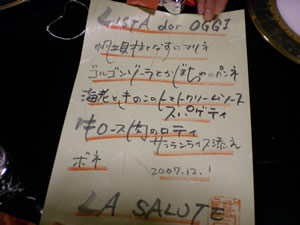 LISTA dar OGGI
帆立貝柱となすのマリネ
ゴルゴンゾーラとかぼちゃのペンネ
海老ときのこのトマトクリームソース
スパゲティ
牛ロース肉のロティ
サフランライス添え
ボネ
2007.12.1
LA SALUTE